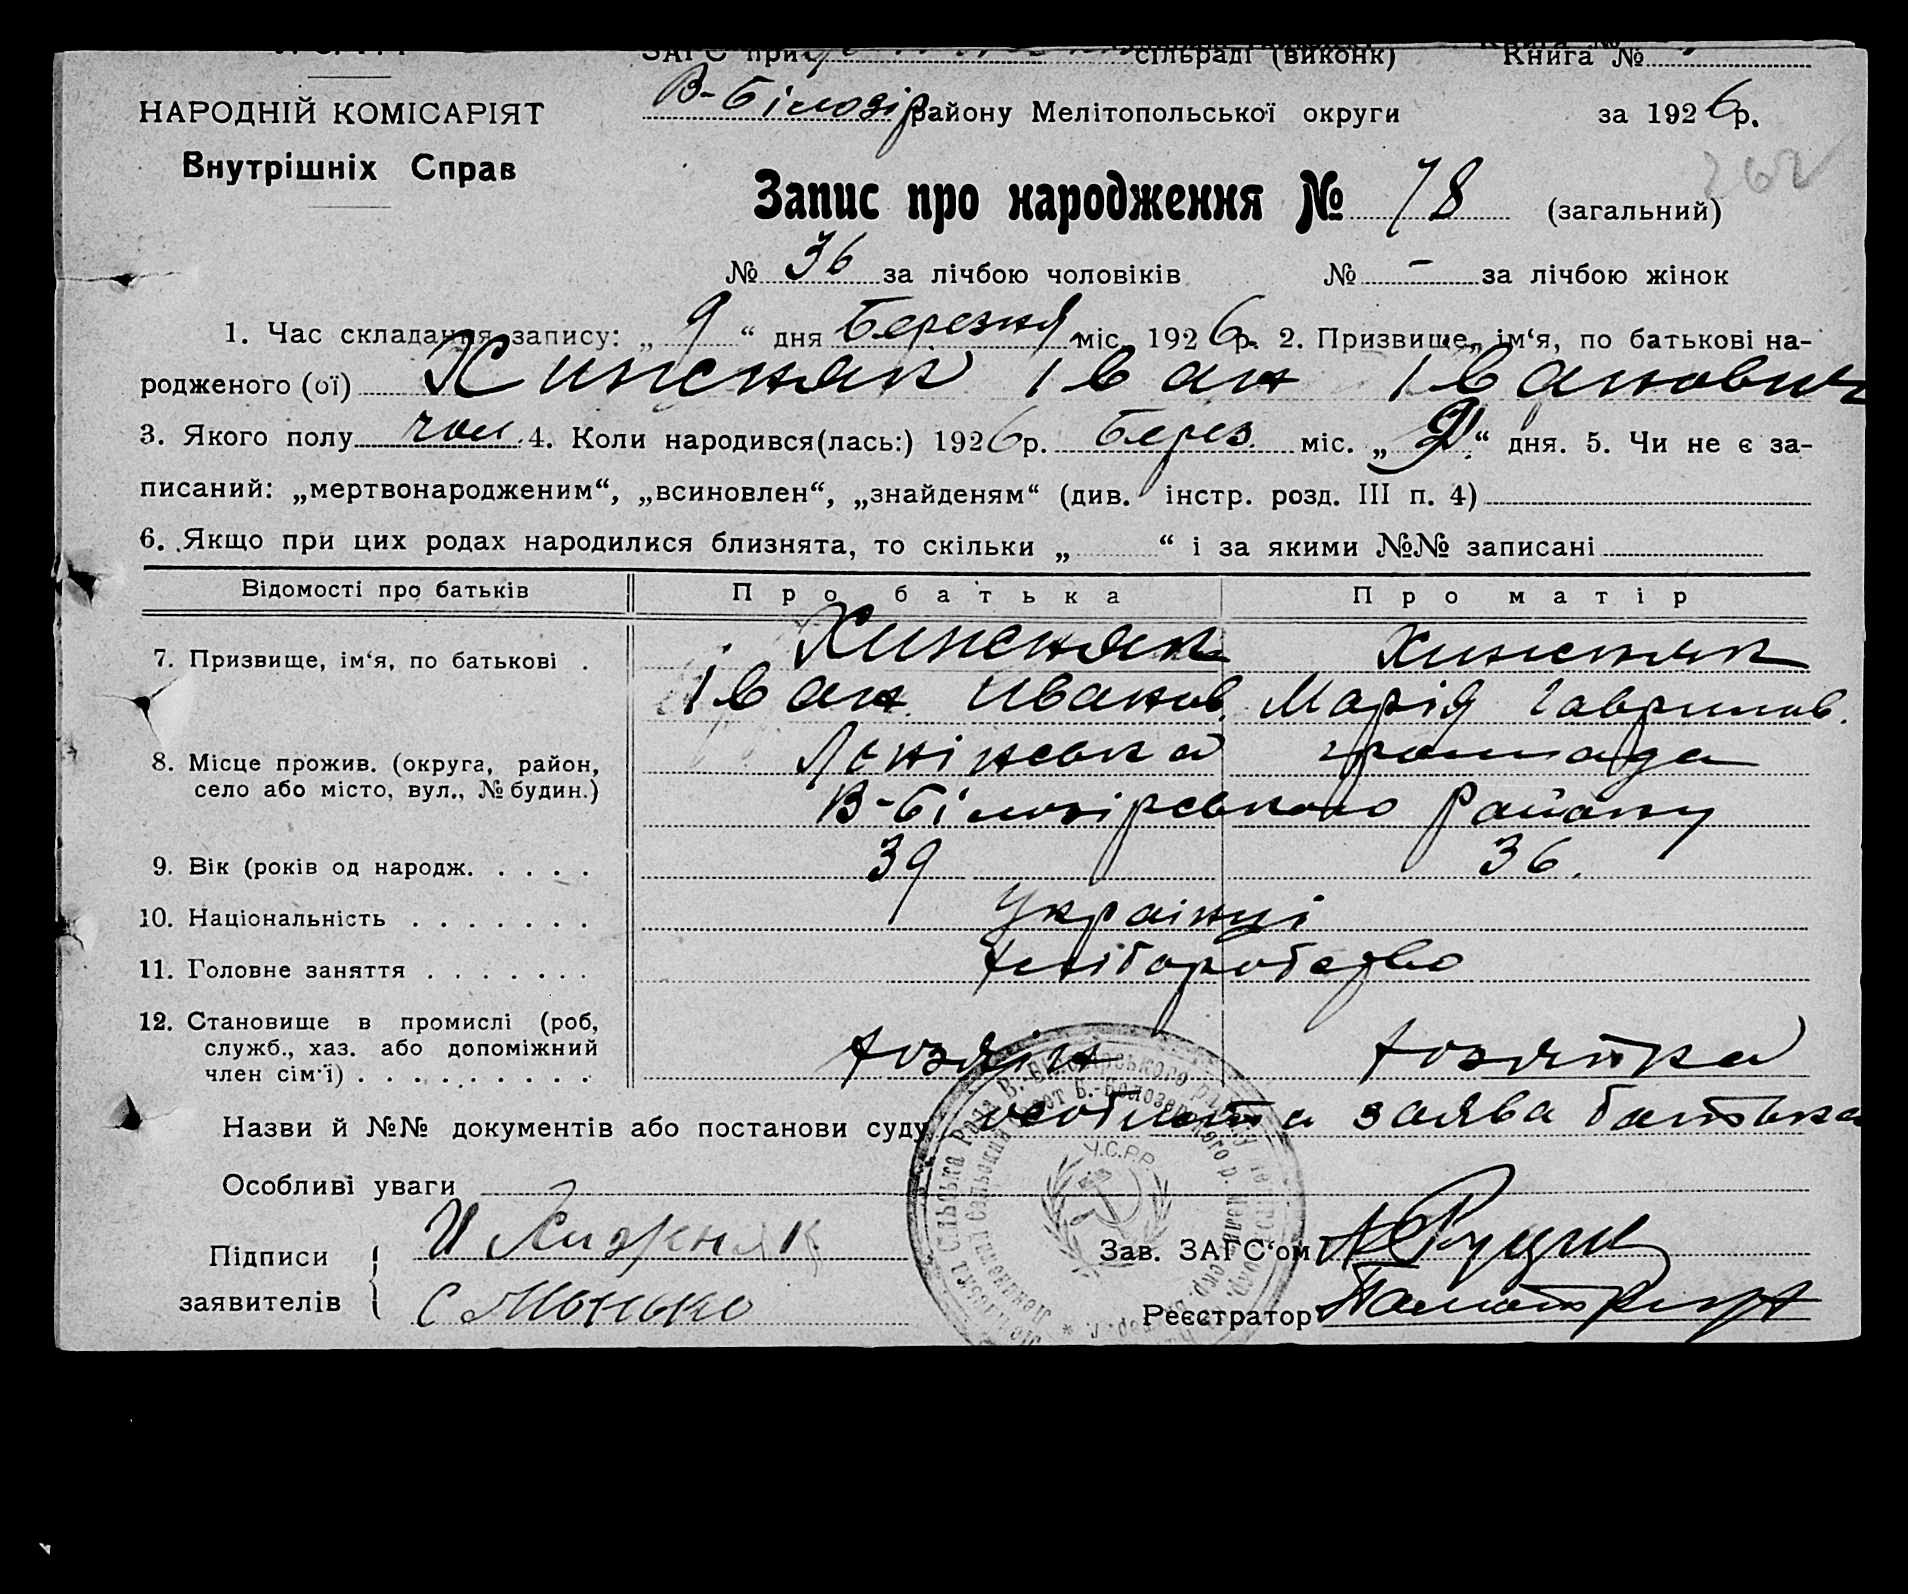 ЗАГС при сільраді (виконк) Книга №
В-Білозір району Мелітопольської округи за 1926 р.
НАРОДНІЙ КОМІСАРІЯТ
Внутрішніх Справ
262
Запис про народження № 78 (загальний)
№ 36 за лічбою чоловіків № – за лічбою жінок
1. Час складання запису: „ 9 “ дня Березня міс. 1926 р. 2. Призвище, ім‘я, по батькові на-
родженого (ої) Хижняк Іван Іванович
3. Якого полу чол. 4. Коли народився(лась:) 1926 р. Берез. міс. „ “ дня. 5. Чи не є за-
писаний: „мертвонародженим“, „всиновлен“, „знайденям“ (див. інстр. розд. III п. 4)
6. Якщо при цих родах народилися близнята, то скільки „ “ і за якими №№ записані
Відомості про батьків Про батька Про матір
7. Призвище, ім‘я, по батькові . Хижняк Хижняк
Іван Иванов. Марія Гаврилов.
8. Місце прожив. (округа, район, Ленінська громада
село або місто, вул., № будин.) В-Білозірського району
9. Вік (років од народж. . . . . 39 36.
10. Національність . . . . . . . Українці
11. Головне заняття . . . . . . . хліборобство
12. Становище в промислі (роб,
служб., хаз. або допоміжний
член сім‘ї) . . . . . . . . . . хозяін хозяйка
Назви й №№ документів або постанови суду особиста заява батька
Особливі уваги
У.С.Р.Р.
Підписи И Хижняк Зав. ЗАГС‘ом
заявителів С Монько Реєстратор